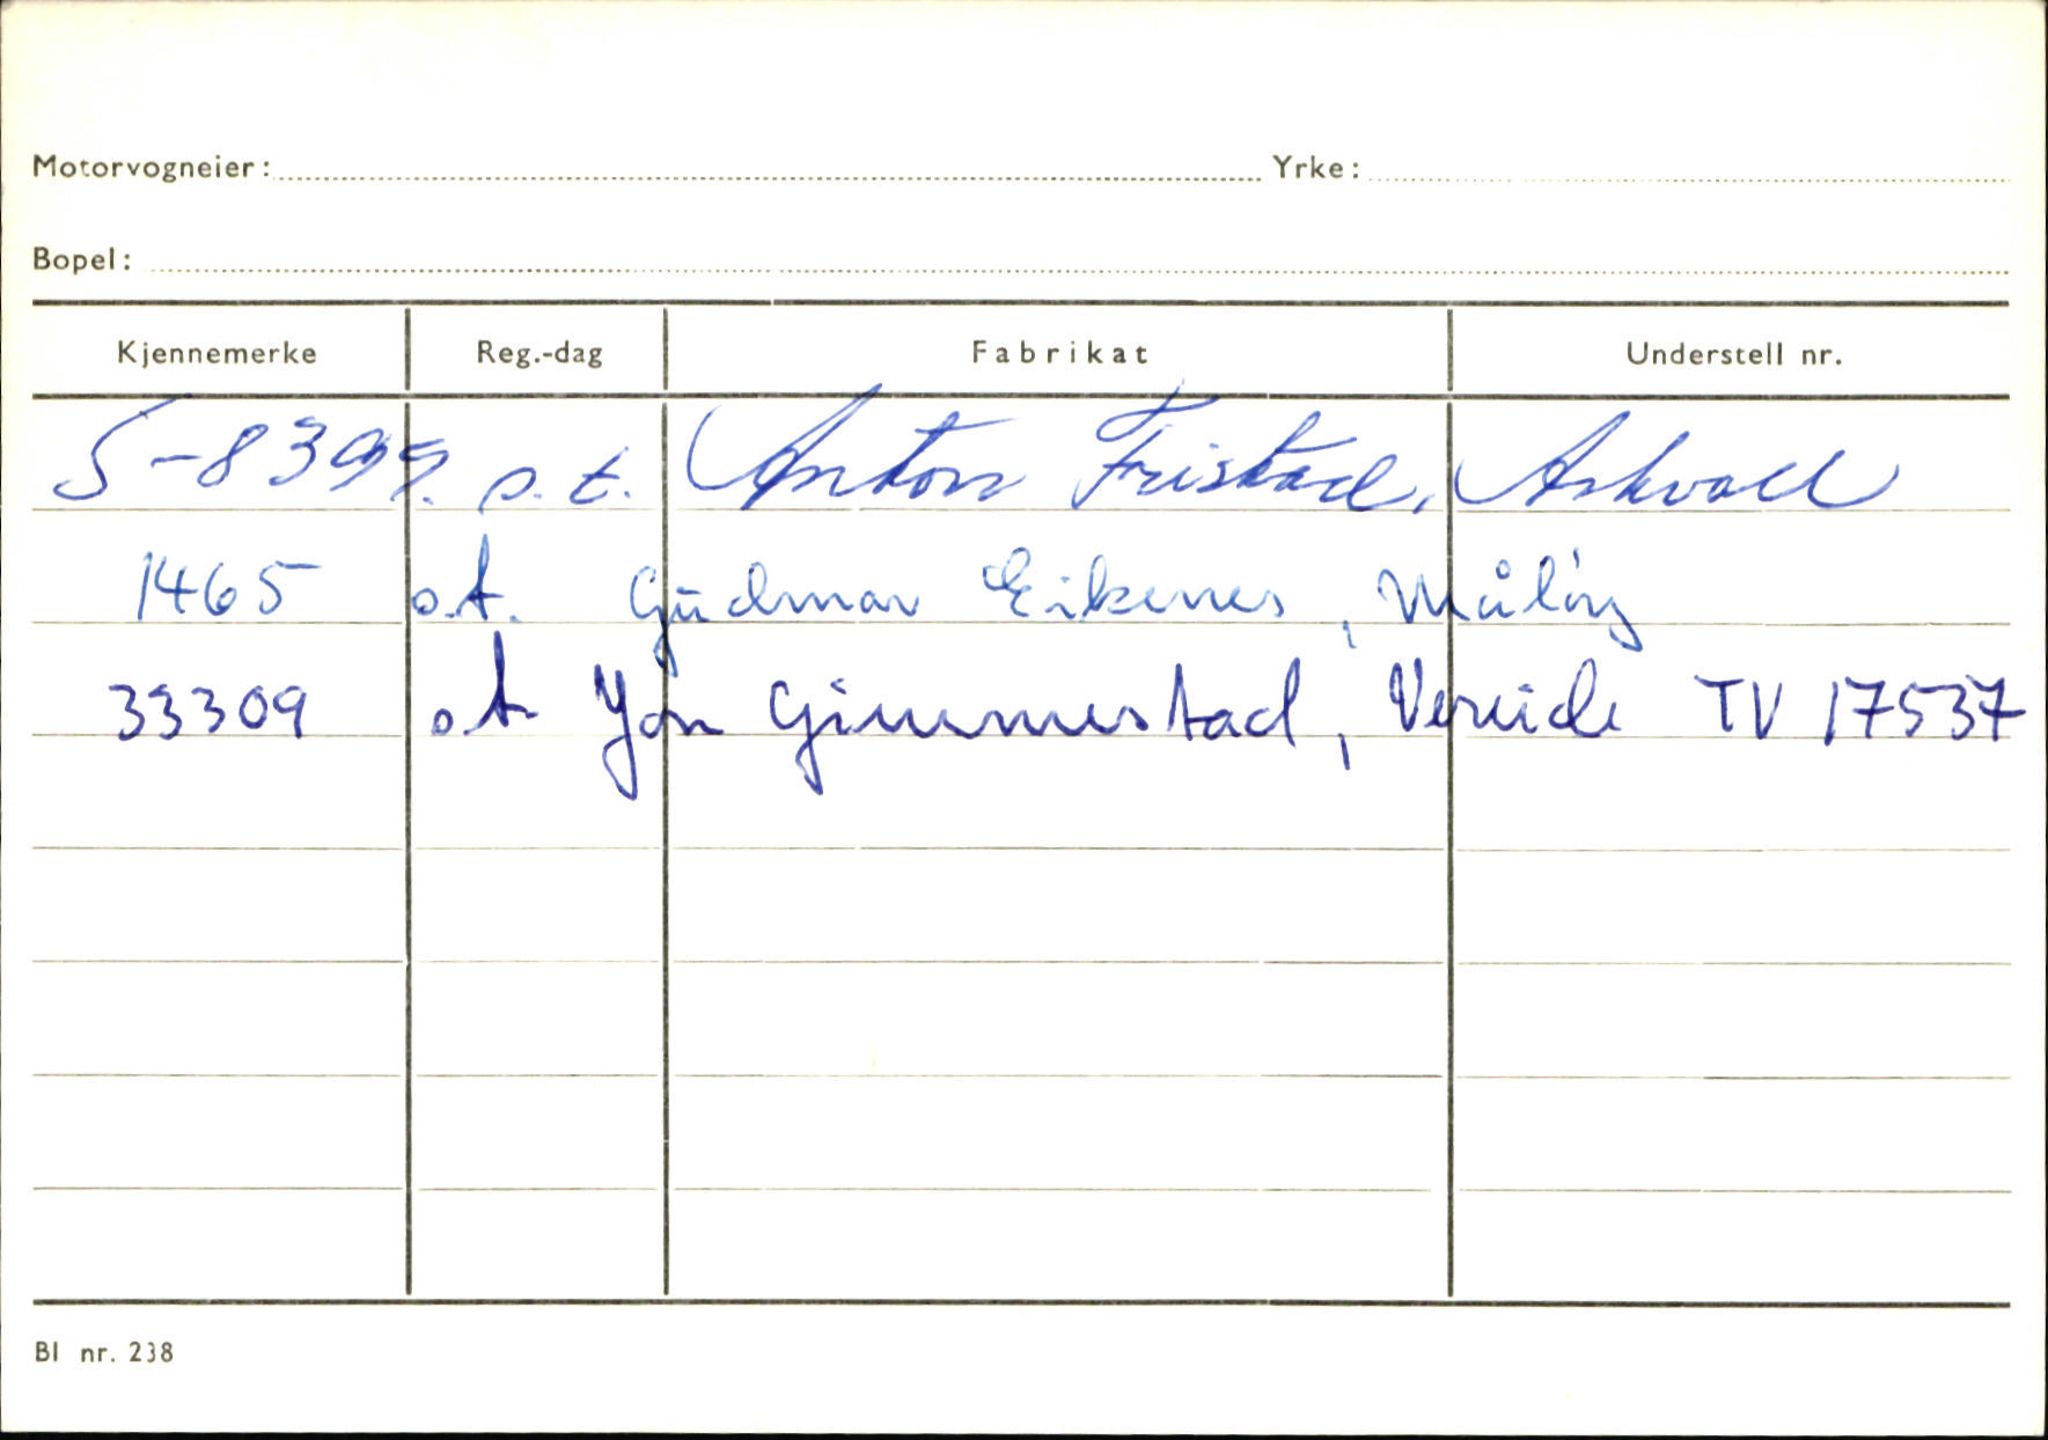 Motorvogneier: Yrke:
Bopel:
Kjennemerke Reg.-dag Fabrikat Understell nr.
S-8399. o.t. Anton Fristad, Askvoll
1465 o.t. Gudmar Eikenes, Måløy
33309 o.t Jon Gimmestad, Vereide TV 17537
Bl nr. 238